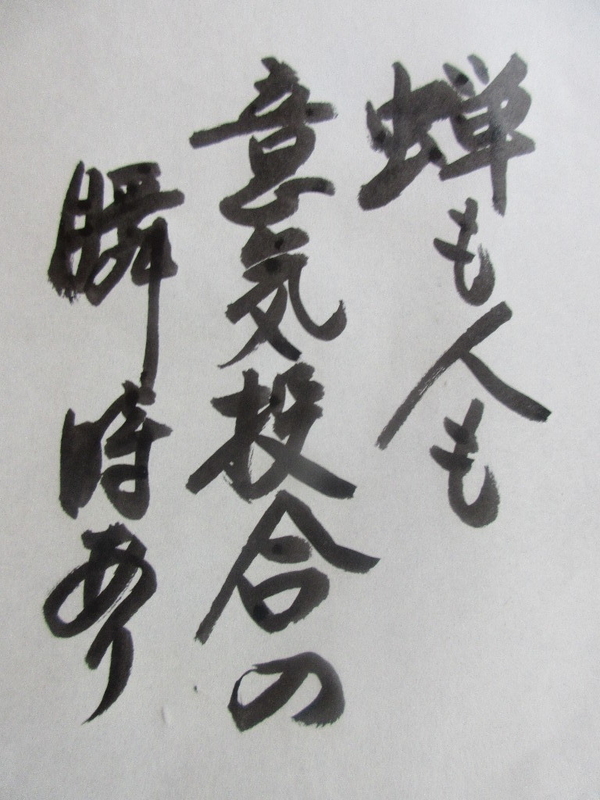 蝉も人も
意気投合の
瞬時あり